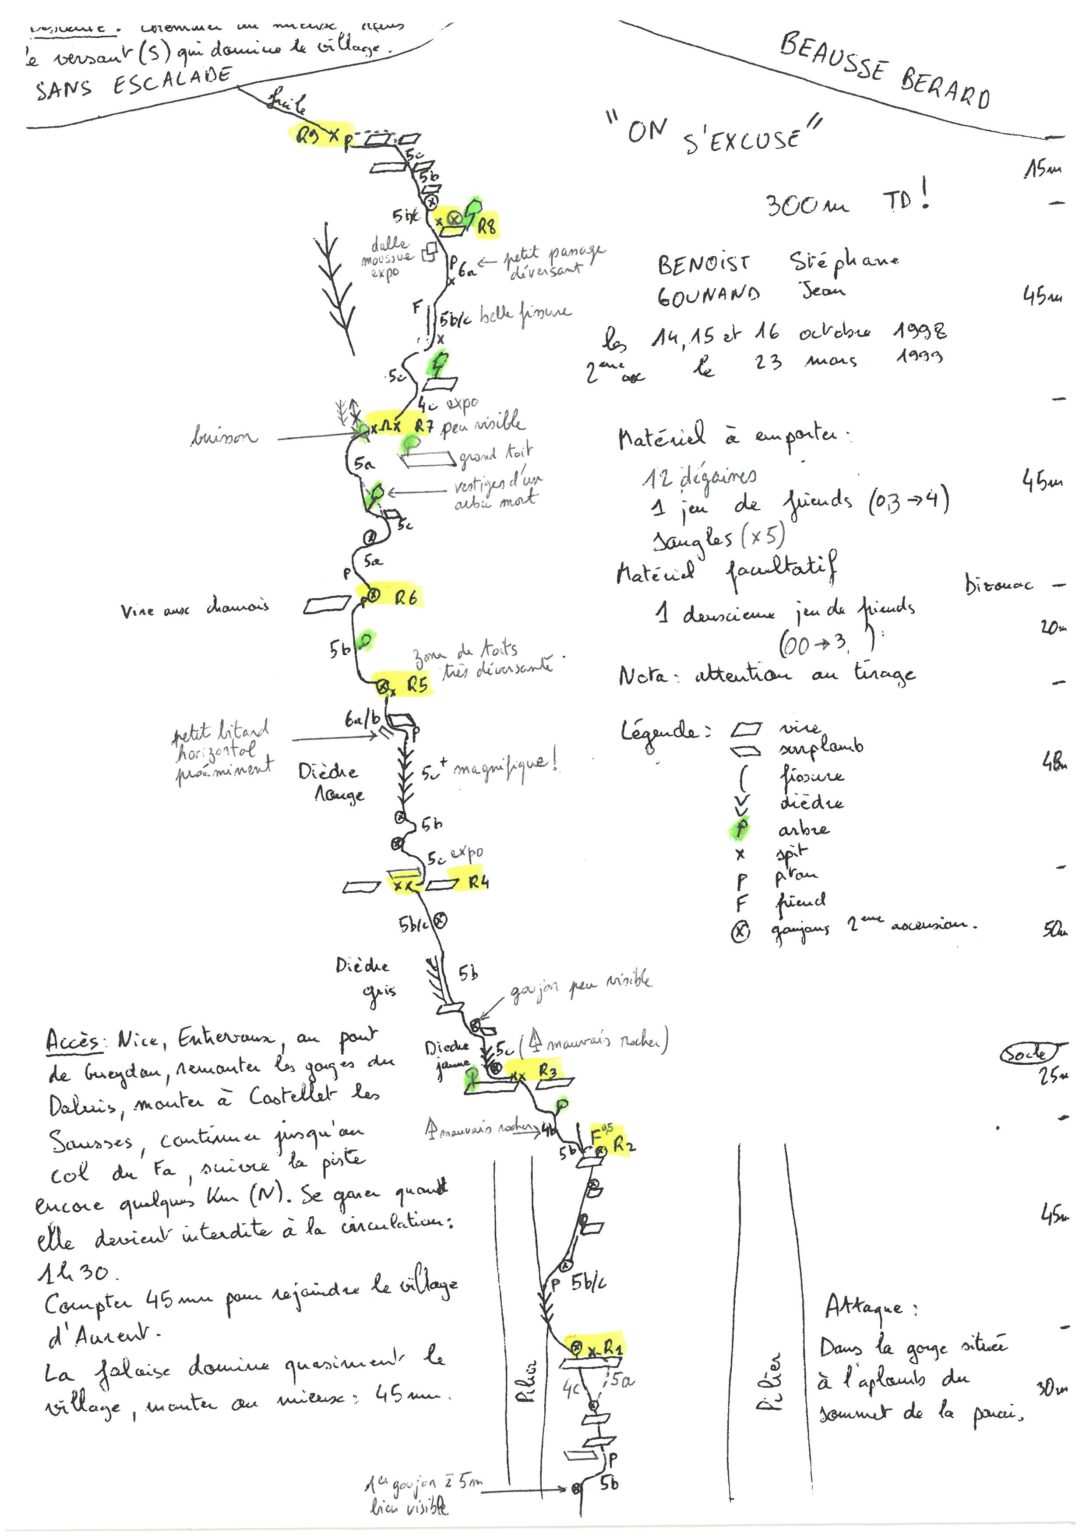 Descente : au mieux dans
le versant (S) qui domine le village.
SANS ESCALADE
BEAUSSE BERARD
"ON S'EXCUSE"
300m TD!
BENOIST Stéphane
GOUNAND Jean
les 14, 15 et 16 octobre 1998
2eme asc le 23 mars 1999
Matériel à emporter :
12 dégaines
1 jeu de friends (0,3→4)
sangles (x5)
Matériel facultatif
1 deuxieme jeu de friends
(00→3, )
Nota : attention au tirage
Légende :
vire
surplomb
fissure
dièdre
arbre
x spit
P piton
F friend
goujons 2eme ascension.
15m
45m
45m
bivouac
20m
48m
50m
socle
25m
45m
30m
facile
R9 x P
5c
5b
5b/c
R8
dalle
moussue
expo
P
6a ← petit passage
déversant
F
5b/c belle fissure
5c
4c expo
R7 peu visible
buisson
grand toit
5a
vestiges d'un
arbre mort
5c
5a
P
R6
Vire aux chamois
5b
zone de toits
très déversante.
R5
6a/b
P
petit bitard
horizontal
proéminent
Dièdre
rouge
5c+ magnifique!
5b
5c expo
xx R4
5b/c
Dièdre
gris
5b
goujon peu visible
Dièdre
jaune
5c (mauvais rocher)
xx R3
mauvais rocher
4b
5b
F0,5
R2
P 5b/c
x R1
4c
5a
P
5b
Pilier
Pilier
1er goujon à 5m
bien visible
Accès : Nice, Entrevaux, au pont
de Gueydan, remonter les gorges du
Daluis, monter à Castellet les
Sausses, continuer jusqu'au
col du Fa, suivre la piste
encore quelques Km (N). Se garer quand
elle devient interdite à la circulation :
1h30.
Compter 45mn pour rejoindre le village
d'Aurent.
La falaise domine quasiment le
village, monter au mieux : 45mn.
Attaque :
Dans la gorge située
à l'aplomb du
sommet de la paroi.